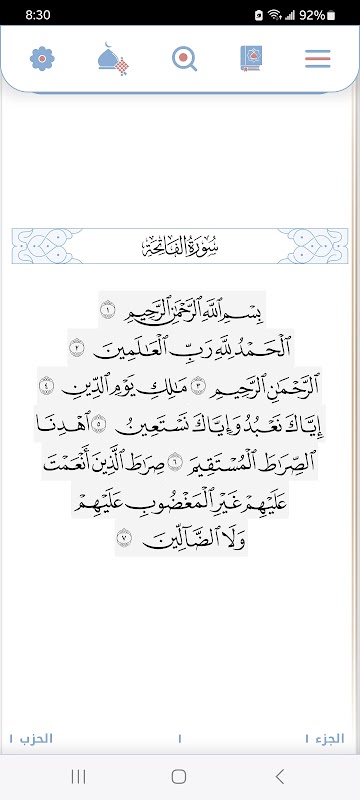 8:30
92%
سُورَةُ الفَاتِحَةِ
بِسْمِ ٱللَّهِ ٱلرَّحْمَٰنِ ٱلرَّحِيمِ ١
ٱلْحَمْدُ لِلَّهِ رَبِّ ٱلْعَٰلَمِينَ ٢
ٱلرَّحْمَٰنِ ٱلرَّحِيمِ ٣ مَٰلِكِ يَوْمِ ٱلدِّينِ ٤
إِيَّاكَ نَعْبُدُ وَإِيَّاكَ نَسْتَعِينُ ٥ ٱهْدِنَا
ٱلصِّرَٰطَ ٱلْمُسْتَقِيمَ ٦ صِرَٰطَ ٱلَّذِينَ أَنْعَمْتَ
عَلَيْهِمْ غَيْرِ ٱلْمَغْضُوبِ عَلَيْهِمْ
وَلَا ٱلضَّآلِّينَ ٧
الجزء ١
١
الحزب ١